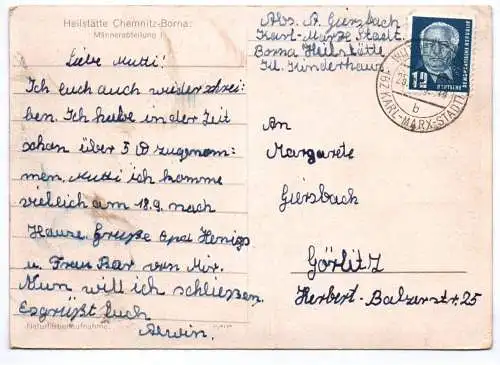 Heilstätte Chemnitz-Borna:
Männerabteilung I
Liebe Mutti!
Ich euch auch wieder schrei-
ben. Ich habe in der Zeit
schon über 5 ℔ zugenom-
men. Mutti ich komme
vieleich am 18.9. nach
Hause. Grüße opa Henigs
u Frau Bar von Mir.
Nun will ich schließen
Es grüßt Euch
Erwin.
Naturliebenaufnahme.
Abs. A. Giersbach
Karl-Marx-Stadt
Borna Heilstätte
Kl. Kinderhaus
12
DEUTSCHE
DEMOKRATISCHE REPUBLIK
KARL-MARX-STADT
b
An
Margarete
Giersbach
Görlitz
Herbert-Balzerstr 25